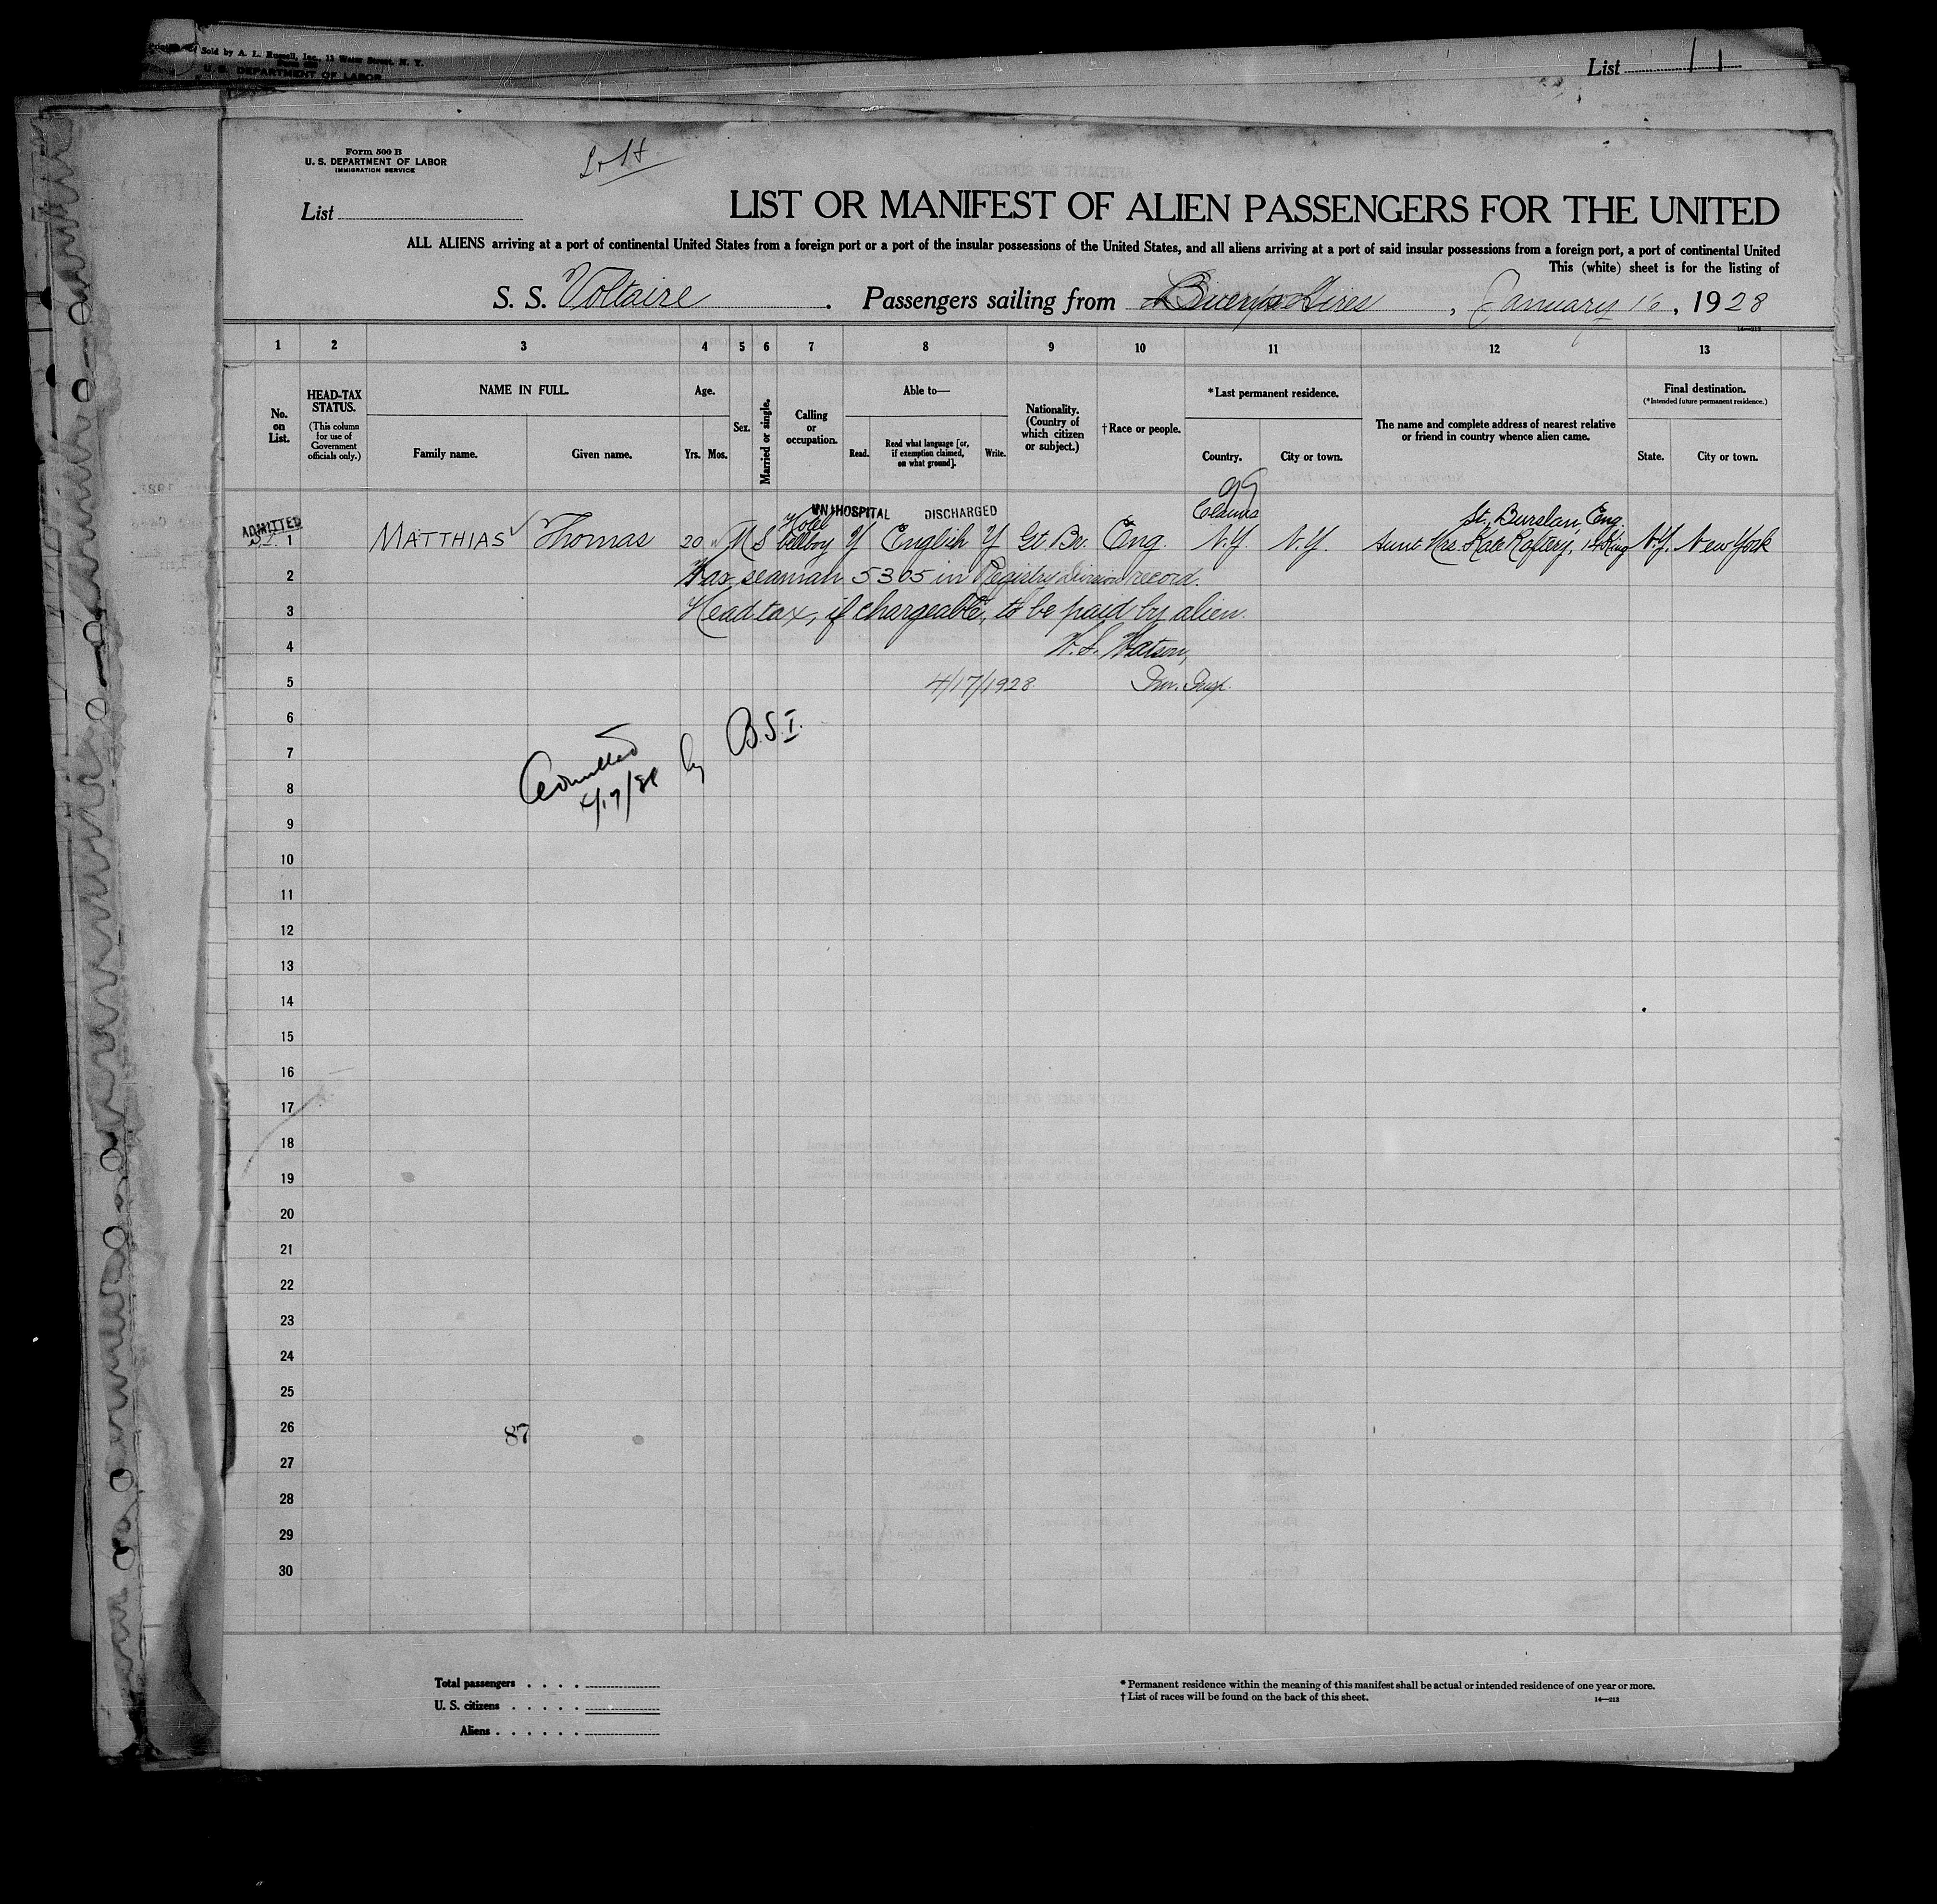 Sold by A. L. Russell, Inc., 13 Water Street, N. Y.
U. S. DEPARTMENT OF LABOR
List 11
Form 500 B
U. S. DEPARTMENT OF LABOR
IMMIGRATION SERVICE
List
LIST OR MANIFEST OF ALIEN PASSENGERS FOR THE UNITED
ALL ALIENS arriving at a port of continental United States from a foreign port or a port of the insular possessions of the United States, and all aliens arriving at a port of said insular possessions from a foreign port, a port of continental United
This (white) sheet is for the listing of
S. S. Voltaire. Passengers sailing from Buenos Aires, January 16, 1928
14—213
1 2 3 4 5 6 7 8 9 10 11 12 13
No. on List.
HEAD-TAX STATUS.
(This column for use of Government officials only.)
NAME IN FULL.
Family name.
Given name.
Age.
Yrs. Mos.
Sex.
Married or single.
Calling or occupation.
Able to—
Read.
Read what language [or, if exemption claimed, on what ground].
Write.
Nationality. (Country of which citizen or subject.)
†Race or people.
*Last permanent residence.
Country.
City or town.
The name and complete address of nearest relative or friend in country whence alien came.
Final destination.
(*Intended future permanent residence.)
State.
City or town.
ADMITTED
IN HOSPITAL DISCHARGED
Claims
St., Burslan, Eng.
1 MATTHIAS Thomas 20 M S Hotel bellboy Y English Y Gt. Br. Eng. N.Y. N.Y. Aunt Mrs. Kate Raftery, 14 King N.Y. New York
2 Was seaman 5305 in Registry Division record.
3 Head tax, if chargeable, to be paid by alien.
4 W.S. Watson,
5 4/17/1928. Imm. Insp.
6
7 Admitted by B.S.I.
8 4/17/28
9
10
11
12
13
14
15
16
17
18
19
20
21
22
23
24
25
26 87
27
28
29
30
Total passengers
U. S. citizens
Aliens
* Permanent residence within the meaning of this manifest shall be actual or intended residence of one year or more.
† List of races will be found on the back of this sheet.
14—213